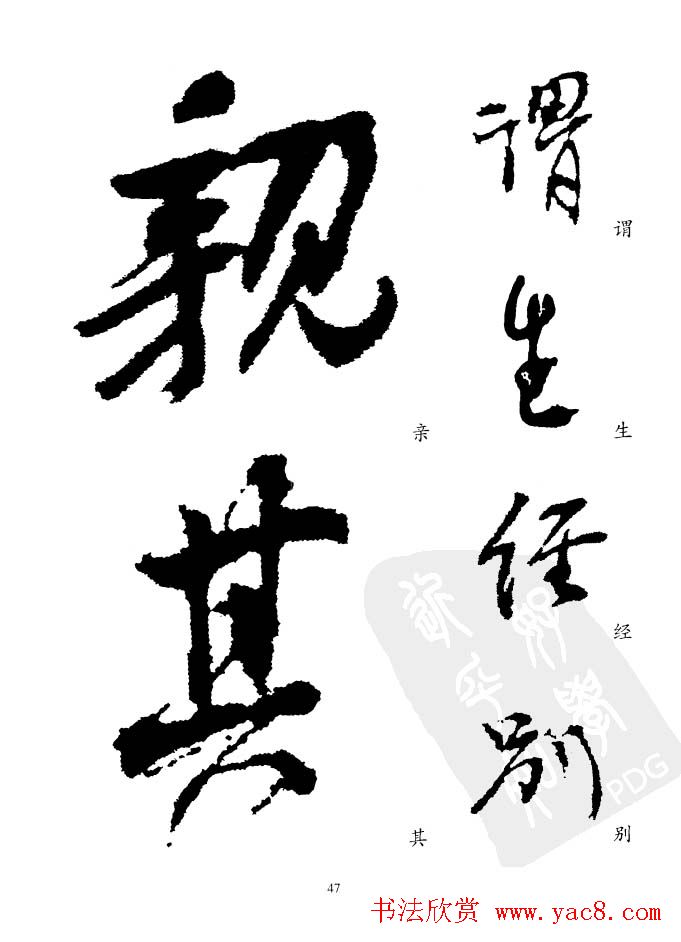 謂
谓
生
生
经
经
別
别
親
亲
其
其
PDG
47
书法欣赏 www.yac8.com